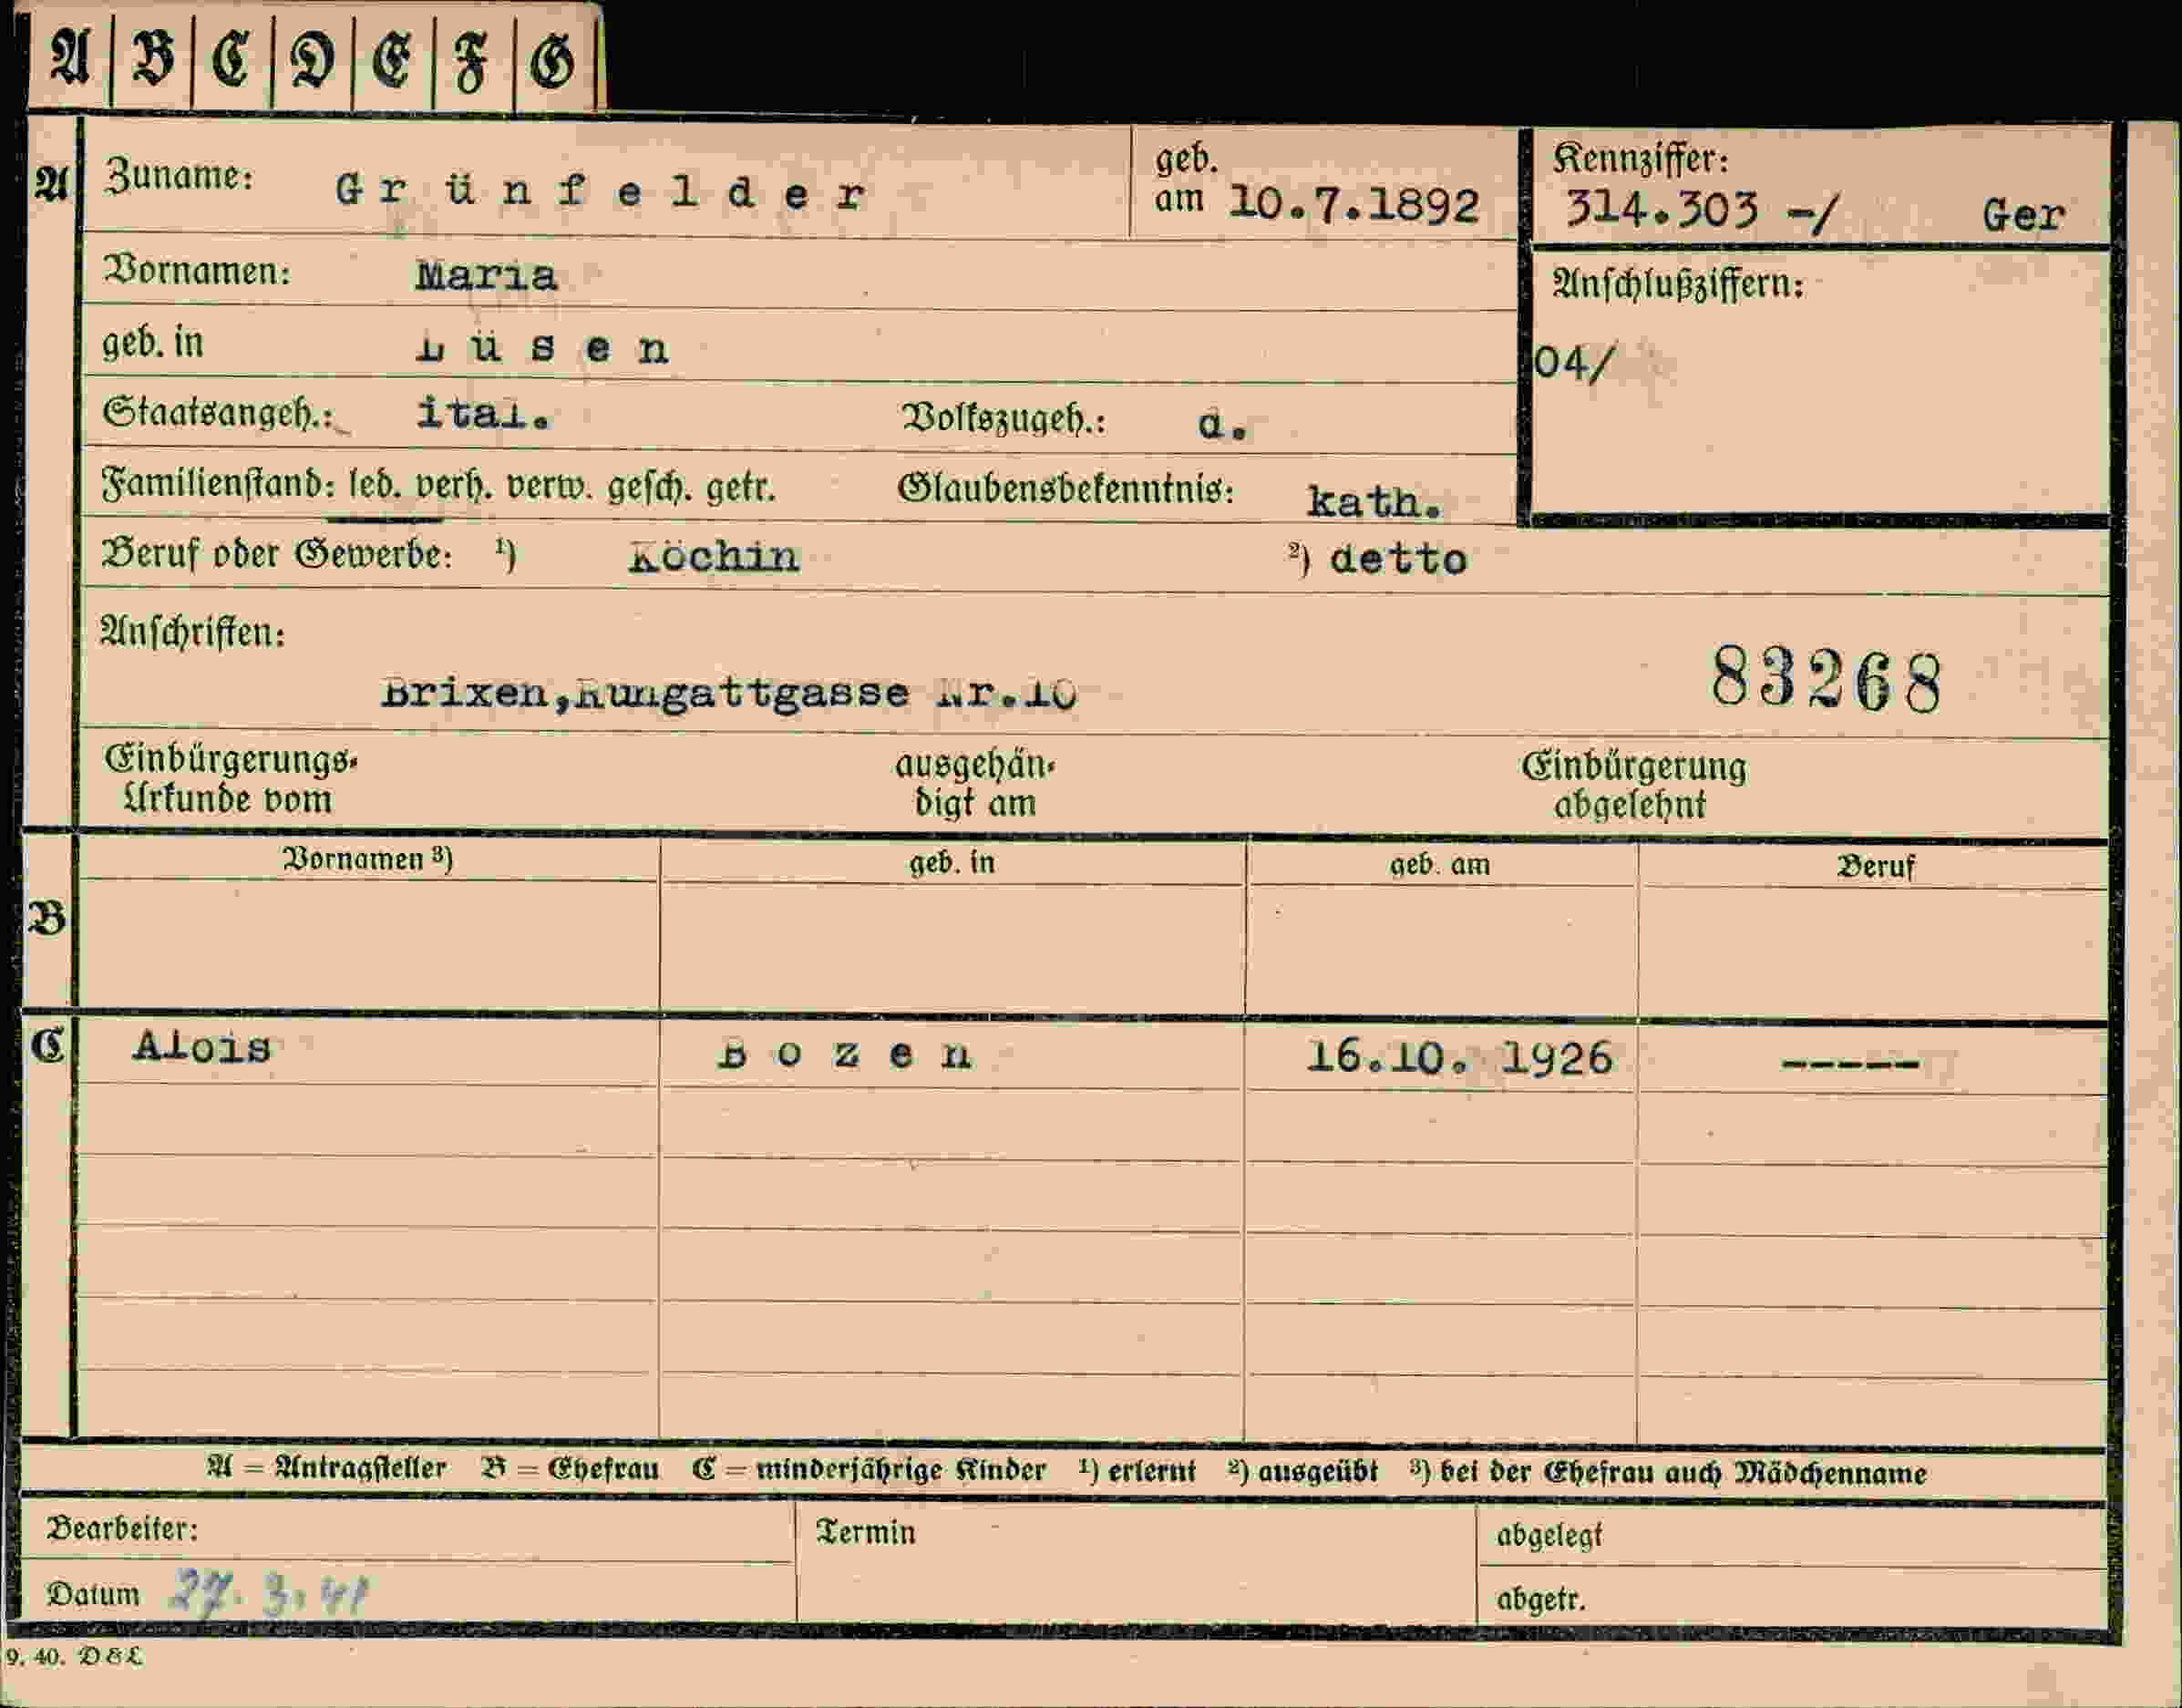 A B C D E F G
A Zuname: Grünfelder geb. am 10.7.1892 Kennziffer: 314.303 -/ Ger
Vornamen: Maria
Anschlußziffern:
geb. in Lüsen
04/
Staatsangeh.: ital. Volkszugeh.: d.
Familienstand: led. verh. verw. gesch. getr. Glaubensbekenntnis: kath.
Beruf oder Gewerbe: ¹) Köchin ²) detto
Anschriften:
Brixen,Rungattgasse Nr.10 83268
Einbürgerungs- ausgehän- Einbürgerung
Urkunde vom digt am abgelehnt
Vornamen ³) geb. in geb. am Beruf
B
C Alois Bozen 16.10. 1926 -----
A = Antragsteller B = Ehefrau C = minderjährige Kinder ¹) erlernt ²) ausgeübt ³) bei der Ehefrau auch Mädchenname
Bearbeiter: Termin abgelegt
Datum 27.3.41 abgetr.
9. 40. D&L